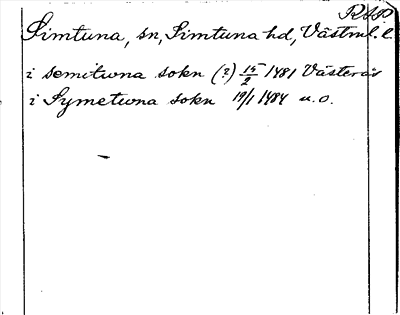 RAP
Simtuna, sn, Simtuna hd, Västml. l.
i semituna sokn (?) 15/2 1481 Västerås
i Symetuna sokn 19/1 1484 u.o.